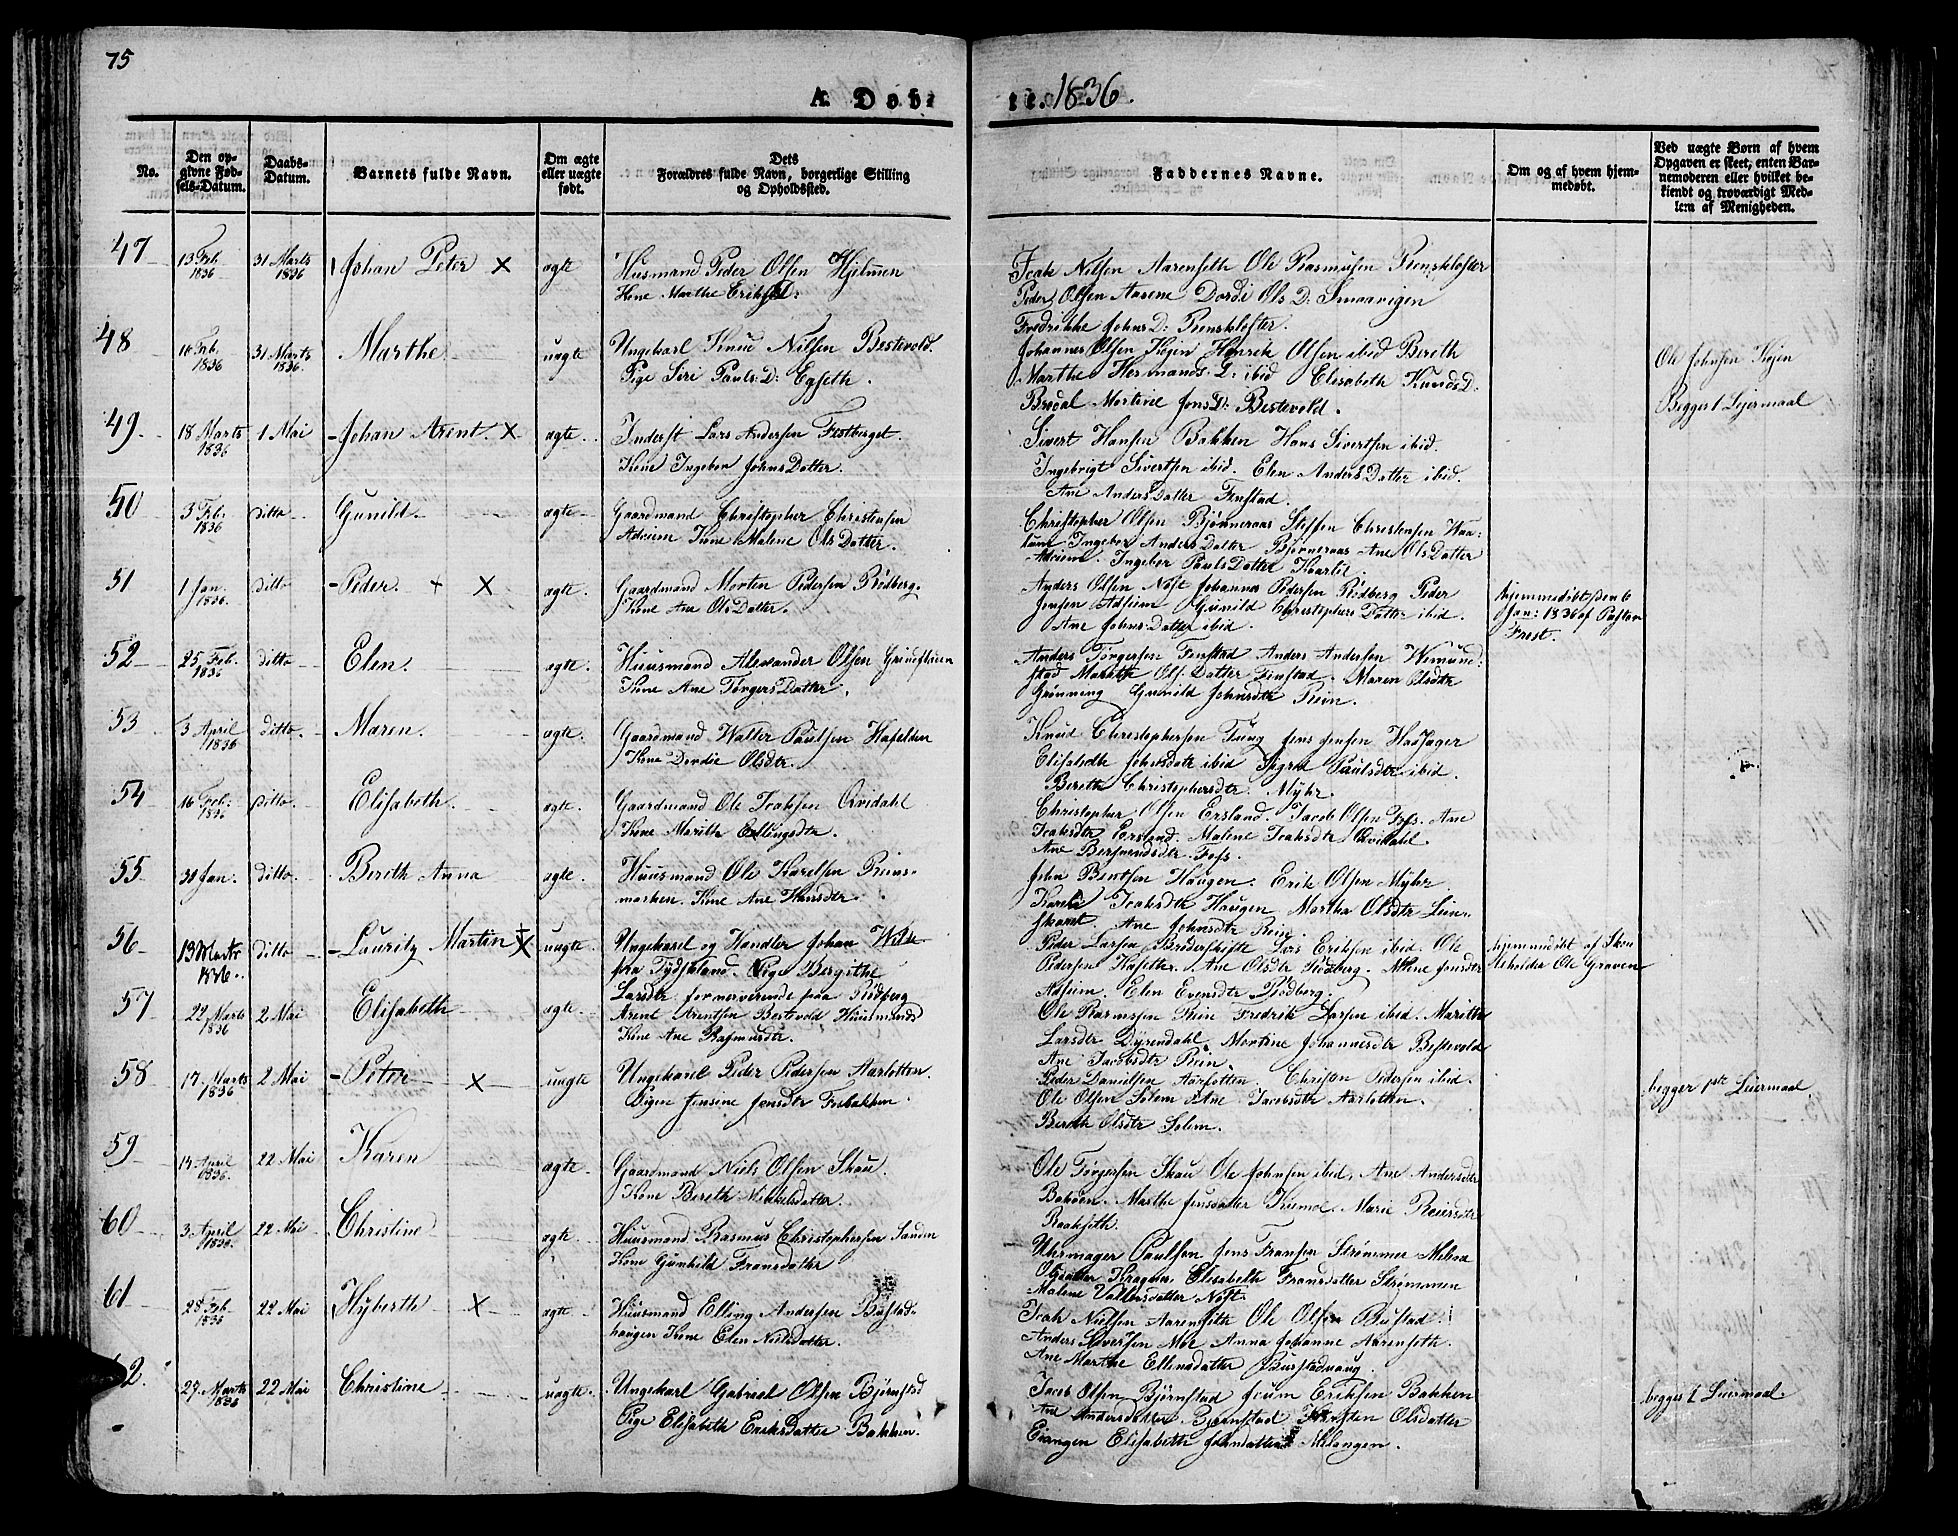 75
A. Døb-
te. 1836.
No.
Den op-
givne Fød-
sels-Datum.
Daabs-
Datum.
Barnets fulde Navn.
Om ægte
eller uægte
født.
Dets
Forældres fulde Navn, borgerlige Stilling
og Opholdssted.
Faddernes Navne.
Om og af hvem hjem-
medøbt.
Ved uægte Børn af hvem
Opgaven er skeet, enten Bar-
nemoderen eller hvilket be-
kiendt og troværdigt Med-
lem af Menigheden.
47 13 Feb. 1836 31 Marts 1836 Johan Peter X ægte Huusmand Peder Olsen Hjelmen
Kone Marthe Eriksd:
Isak Nilsen Aarenseth Ole Rasmusen Reinskloster
Peder Olsen Aarene Dordi Ols D: Smaavigen
Fredrikke Johns D: Reinskloster.
48 Feb. 1836 31 Marts 1836. Marthe uægte Ungekarl Knud Nilsen Bestevold.
Pige Siri Pauls: D: Egseth.
Johannes Olsen Højen Henrik Olsen ibid Bereth
Marthe Hermands. D: ibid Elisabeth Knuds D.
Brødal Mortine Jons D: Bestevold.
Ole Johnsen Højen
Begges 1 Lejermaal
49. 18 Marts 1836 1 Mai Johan Arent. X ægte. Inderst Lars Andersen Festberget.
Kone Ingebor Johns Datter.
Sivert Hansen Bakken Hans Sivertsen ibid.
Ingebrigt Sivertsen ibid. Elen Anders Datter ibid.
Ane Anders Datter Fenstad.
50 3 Feb. 1836 ditto Gunild. ægte Gaardmand Christopher Christensen
Adseim Kone Malene Ols Datter.
Christopher Olsen Bjørneraas Steffen Christensen
Ingebor Anders Datter Bjørneraas Ane Ols Datter
Adseim. Ingebor Pauls Datter
51 1 Jan. 1836. ditto Peder. + X ægte. Gaardmand Morten Pedersen Rødberg.
Kone Ane Ols Datter.
Anders Olsen Nøst Johannes Pedersen Rødberg Peder
Jensen Adseim Gunild Christophers Datter ibid.
Ane Johns Datter ibid.
hjemmedøbt den 6
Jan: 1836 af Pastor
Frost.
52 25 Feb. 1836 ditto Elen. ægte. Huusmand Alexander Olsen
Kone Ane Tørgers Datter.
Anders Tørgersen Fenstad Anders Andersen Wemund-
stad Marith Ols. Datter Finstad. Maren Olsdtr
Grønning Gunild Johnsdtr Rein.
53 3 April 1836 ditto. Maren. ægte. Gaardmand Walter Paulsen Hafelden
Kone Dordie Olsdtr.
Knud Christophersen Tung Jens Jensen
Elisabeth Johnsdtr ibid Sigrid Paulsdtr ibid.
Bereth Christophersdtr. Myhr.
54 16 Feb: 1836 ditto Elisabeth. ægte. Gaardmand Ole Isaksen Qvidahl
Kone Marith Ellingsdtr.
Christopher Olsen Ersland. Jacob Olsen Foss. Ane
Isaksdtr Ersland. Malene Isaksdtr Qvidahl.
Ane Bersvendsdtr. Foss.
55 30 Jan. ditto. Bereth Anna ægte. Huusmand Ole Karelsen Reins-
marken. Kone Ane Hansdtr.
John Bentsen Haugen. Erik Olsen Myhr.
Isaksdtr Haugen. Martha Olsdtr Lein-
skaret Ane Johnsdtr Rein.
56 13 Marts 1836. ditto Lauritz Martin X uægte. Ungekarl og Handler Johan Wilde
fra Tydskland. Pige Bergithe
Larsdtr fornærverende paa Rødberg
Peder Larsen Brøderskifte Lars Eriksen ibid. Ole
Pedersen Hasetter. Ane Olsdtr Rødberg. Malene Jensdtr
Adseim. Elen Evensdtr Rødberg.
hjemmedøbt af Skole-
holder Ole Graven
57 22 Marts 1836 2 Mai Elisabeth ægte. Arent Arentsen Bestevold Huusmands
Kone Ane Rasmusdtr.
Ole Rasmusen Rein Fredrik Larsen ibid. Marith
Larsdtr Dyrendahl. Mortine Johannesdtr Bestevold
Ane Jacobsdtr Rein.
58 17 Marts 1836 2 Mai Peter X uægte Ungekarl Peder Pedersen Aarlotten
Pigen Jensine Jensdtr Fosbakken.
Peder Danielsen Aarlotten. Christen Pedersen ibid.
Ole Olsen Solem Ane Jacobsdtr Aarlotten.
Bereth Olsdtr Solem.
begges 1ste Leiermaal
59 14 April 1836. 22 Mai Karen ægte. Gaardmand Niels Olsen Skau.
Kone Bereth Nikkelsdatter.
Ole Tørgersen Skau Ole Johnsen ibid. Ane Andersdtr
Bakken. Marthe Jensdatter Marie Reiersdtr
Raakseth.
60 3 April 1836. 22 Mai Christine ægte. Huusmand Rasmus Christophersen Sanden
Kone Gunhild Fransdatter
Uhrmager Paulsen Jens Fransen Strømmen Milina
Olsdatter Kragnes, Elisabeth Fransdatter Strømmen
Malene Valtersdatter Nøst.
61 28 Feb 1836 22 Mai Hyberth X ægte Huusmand Elling Andersen Bustad-
haugen Kone Elen Nilsdatter.
Isak Nielsen Aarenseth Ole Olsen Bustad.
Anders Siversen Moe Anna Johanne Aarenseth.
Ane Marthe Ellensdatter Burstadvaug.
62. 27 Marts 1836 22 Mai Christine uægte. Ungekarl Gabriel Olsen Bjørnstad
Pige Elisabeth Eriksdatter Bakken.
Jacob Olsen Bjørnstad Erichsen Bakken
Ane Andersdatter Bjørnstad Kirsten Olsdatter
Elisabeth Johnsdatter Melangen.
begges 1 Leiermaal.